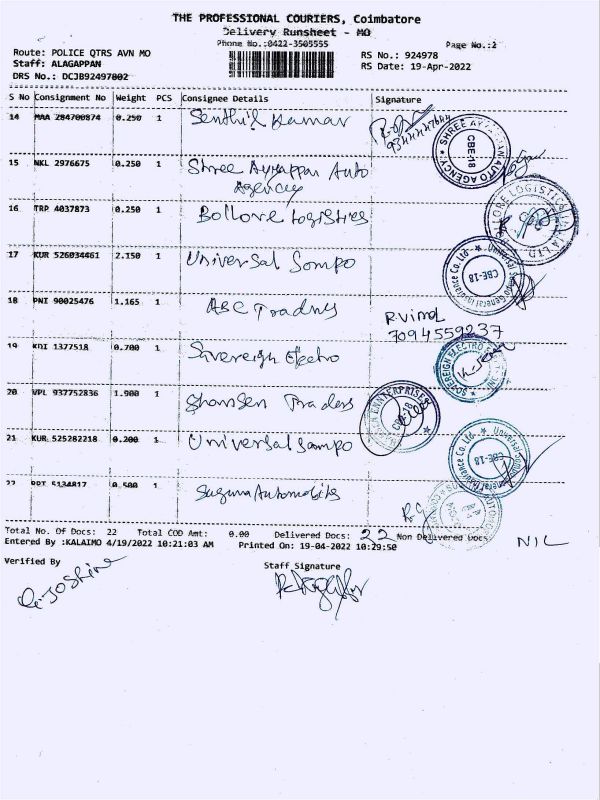 THE PROFESSIONAL COURIERS, Coimbatore
Delivery Runsheet - MO
Phone No.:0422-3505555
Page No.:2
Route: POLICE QTRS AVN MO
RS No.: 924978
Staff: ALAGAPPAN
RS Date: 19-Apr-2022
DRS No.: DCJB92497802
S No Consignment No Weight PCS Consignee Details Signature
14 MAA 284700874 0.250 1 Senthil Kumar
15 NKL 2976675 0.250 1 Shree Ayyappan Auto
Agency
SHREE AYYAPPAN AUTO AGENCY CBE-18
16 TRP 4037873 0.250 1 Bollore Logistics
17 KUR 526034461 2.150 1 Universal Sompo
Universal Sompo General Insurance Co. Ltd. CBE-18
18 PNI 90025476 1.165 1 ABC Trading R.Vimal
7094559237
19 KDI 1377518 0.700 1 Sovereign Electro
SOVEREIGN ELECTRO
20 VPL 937752836 1.900 1 Traders
ENNTERPRISES CBE-18
21 KUR 525282218 0.200 1 Universal Sompo
Universal Sompo General Insurance Co. Ltd. CBE-18
22 5134817 0.500 1 Suguna Automobiles
Total No. Of Docs: 22 Total COD Amt: 0.00 Delivered Docs: 22 Non Delivered Docs NIL
Entered By :KALAIMO 4/19/2022 10:21:03 AM Printed On: 19-04-2022 10:29:50
Verified By
Staff Signature